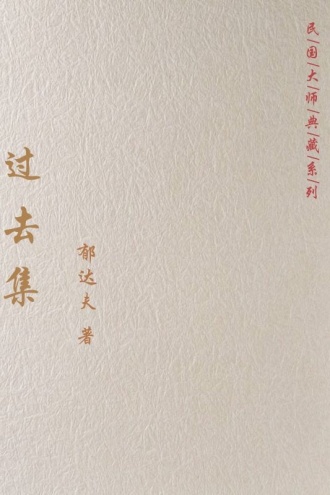 民国大师典藏系列
郁达夫 著
过去集